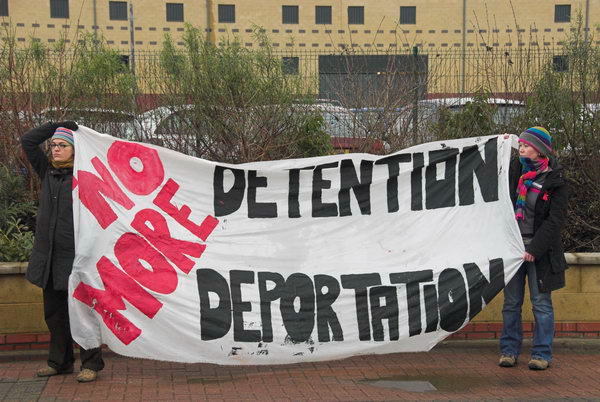 NO
MORE
DETENTION
DEPORTATION